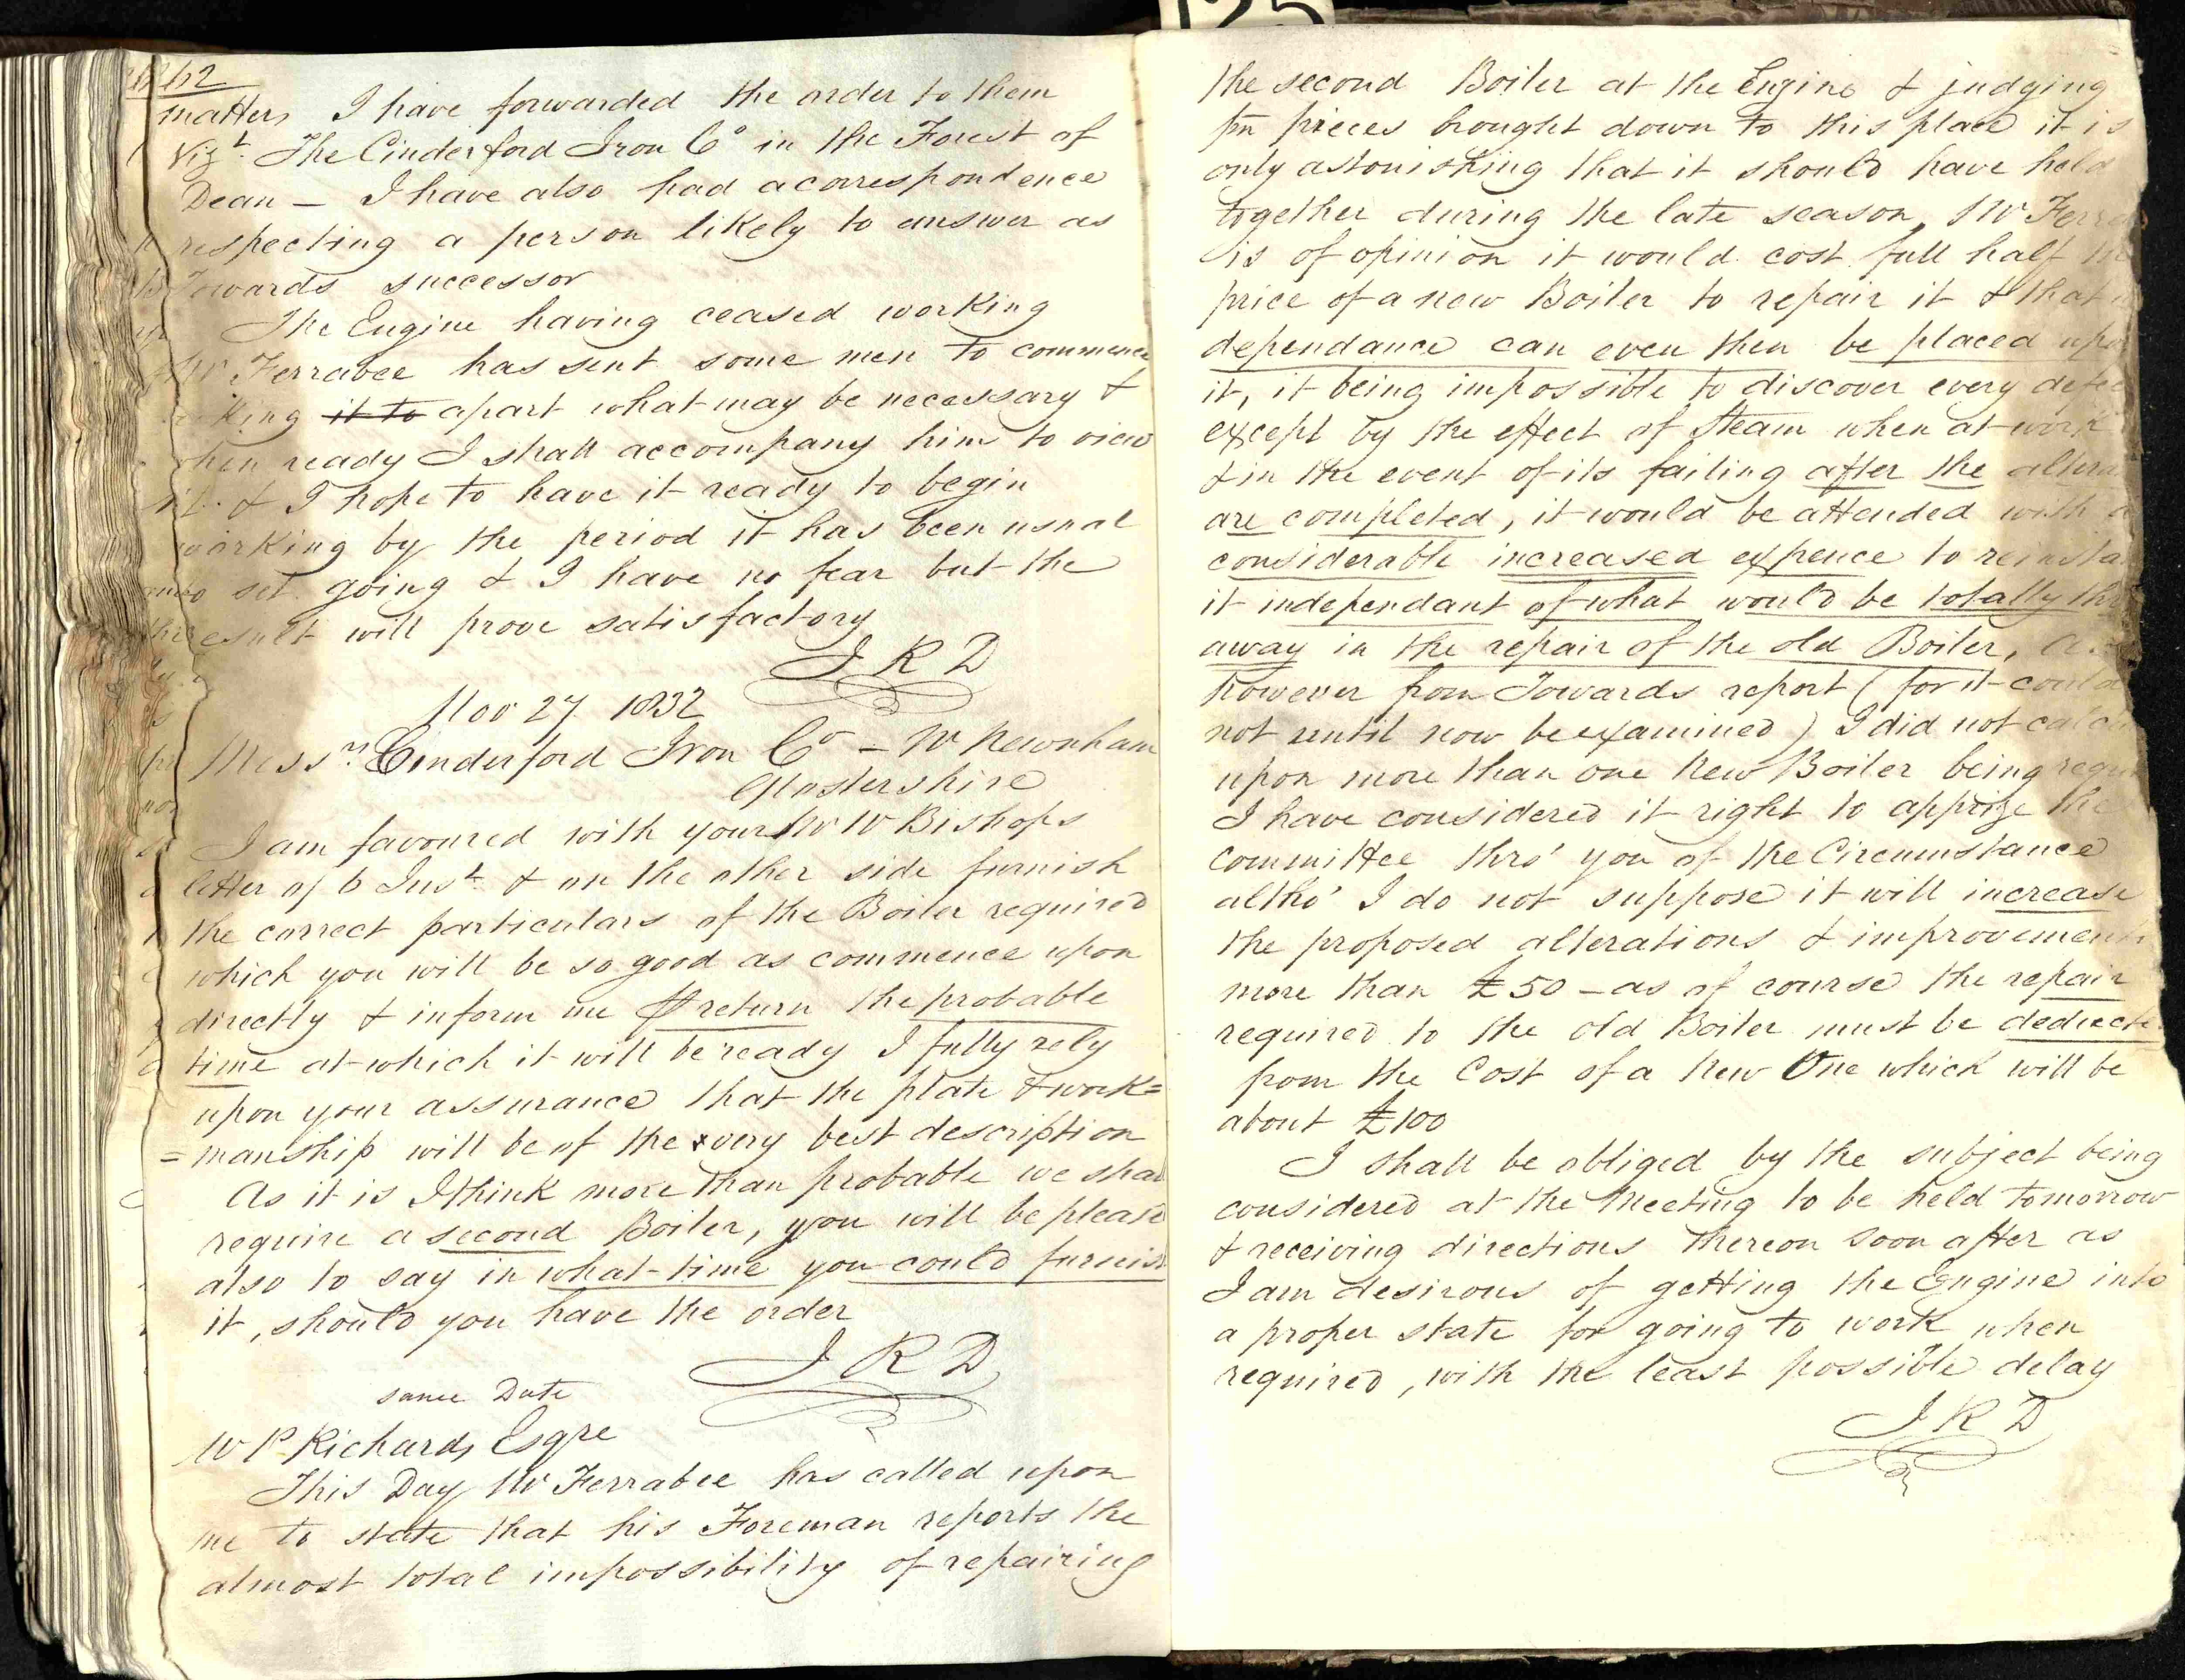 matters I have forwarded the order to them
Vizt. The Cinderford Iron Co in the Forest of
Dean – I have also had a correspondence
respecting a person likely to answer as
Towards successor
The Engine having ceased working
Mr Ferrabee has sent some men to commence
king it to apart what may be necessary &
when ready I shall accompany him to view
it & I hope to have it ready to begin
working by the period it has been usual
to set going & I have no fear but the
result will prove satisfactory
J R D
Nov 27 1832
Messrs Cinderford Iron Co – Nr Newnham
Glostershire
I am favoured with your Mr W Bishops
letter of 6 Inst & on the other side furnish
the correct particulars of the Boiler required
which you will be so good as commence upon
directly & inform me return the probable
time at which it will be ready I fully rely
upon your assurance that the plate & work=
=manship will be of the very best description
As it is I think more than probable we shall
require a second Boiler, you will be pleased
also to say in what time you could furnish
it, should you have the order
J R D
same Date
W P Richards Esqre
This Day Mr Ferrabee has called upon
me to state that his Foreman reports the
almost total impossibility of repairing
125
the second Boiler at the Engine & judging
fm pieces brought down to this place it is
only astonishing that it should have held
together during the late season, Mr
is of opinion it would cost full half
price of a new Boiler to repair it & that
dependance can even then be placed upon
it, it being impossible to discover every
except by the effect of Steam when at work
& in the event of its failing after the
are completed, it would be attended with a
considerable increased expence to
it independant of what would be totally
away in the repair of the old Boiler,
however from Towards report (for it could
not until now be examined) I did not
upon more than one New Boiler being
I have considered it right to apprize the
committee thro' you of the Circumstance
altho' I do not suppose it will increase
the proposed alterations & improvements
more than £50 – as of course the repair
required to the old Boiler must be
from the Cost of a New One which will be
about £100
I shall be obliged by the subject being
considered at the Meeting to be held tomorrow
& receiving directions thereon soon after as
I am desirous of getting the Engine into
a proper state for going to work when
required, with the least possible delay
J R D